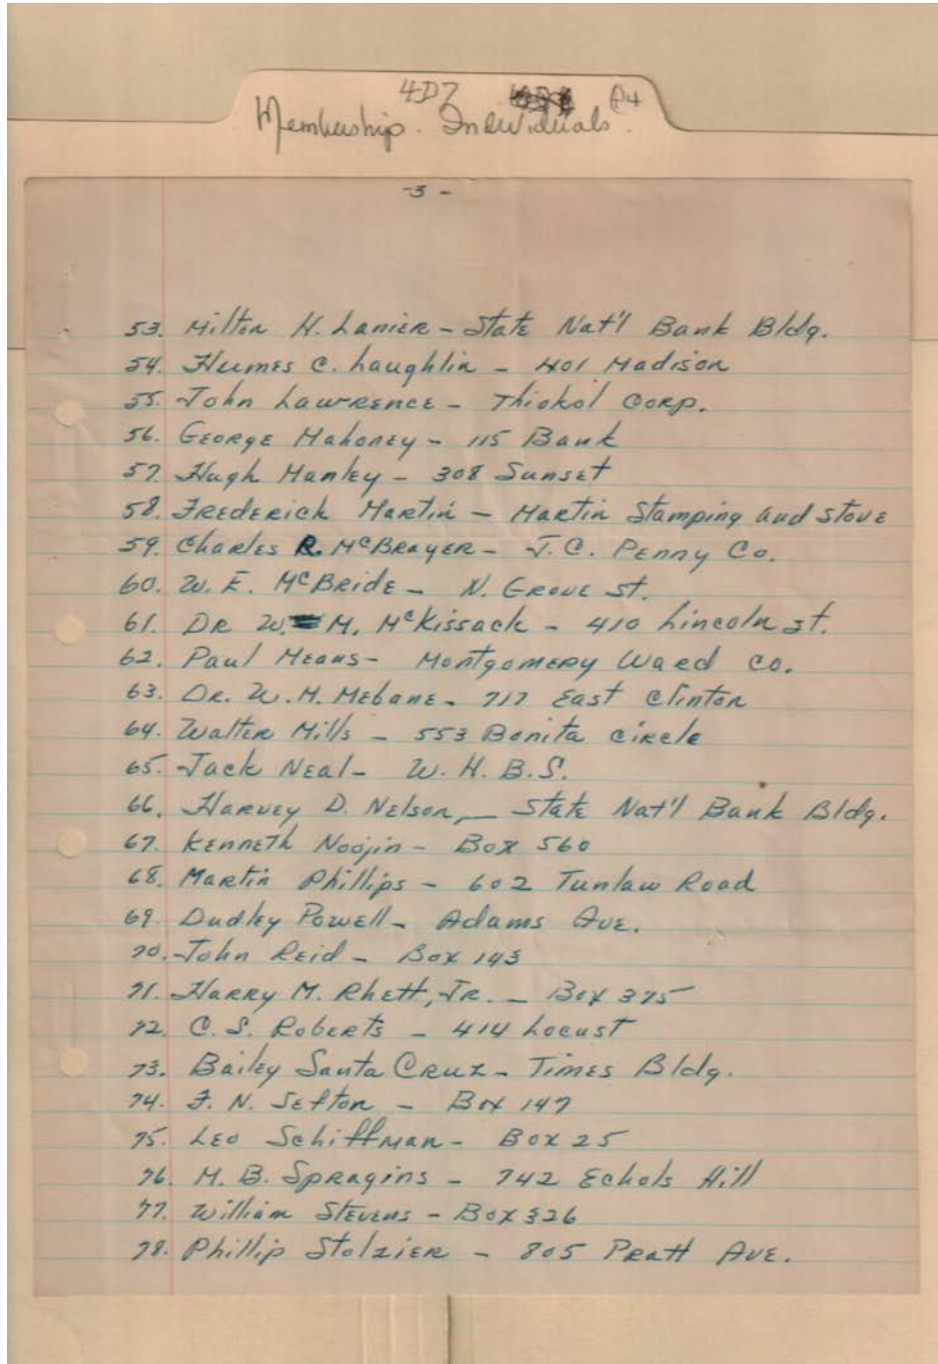 4D7 P4
Membership. Individuals.
-3-
53. Milton H. Lanier - State Nat'l Bank Bldg.
54. Humes C. Laughlin - 401 Madison
55. John Lawrence - Thiokol Corp.
56. George Mahoney - 115 Bank
57. Hugh Manley - 308 Sunset
58. Frederick Martin - Martin Stamping and Stove
59. Charles R. McBrayer - J.C. Penny Co.
60. W. E. McBride - N. Grove St.
61. Dr W. M. McKissack - 410 Lincoln St.
62. Paul Means - Montgomery Ward Co.
63. Dr. W. H. Mebane - 717 East Clinton
64. Walter Mills - 553 Bonita Circle
65. Jack Neal - W. H. B. S.
66. Harvey D. Nelson, - State Nat'l Bank Bldg.
67. Kenneth Noojin - Box 560
68. Martin Phillips - 602 Tunlaw Road
69. Dudley Powell - Adams Ave.
70. John Reid - Box 143
71. Harry M. Rhett, Jr. - Box 375
72. C. S. Roberts - 414 Locust
73. Bailey Santa Cruz - Times Bldg.
74. F. N. Sefton - Box 147
75. Leo Schiffman - Box 25
76. M. B. Spragins - 742 Echols Hill
77. William Stevens - Box 326
78. Phillip Stolzier - 805 Pratt Ave.